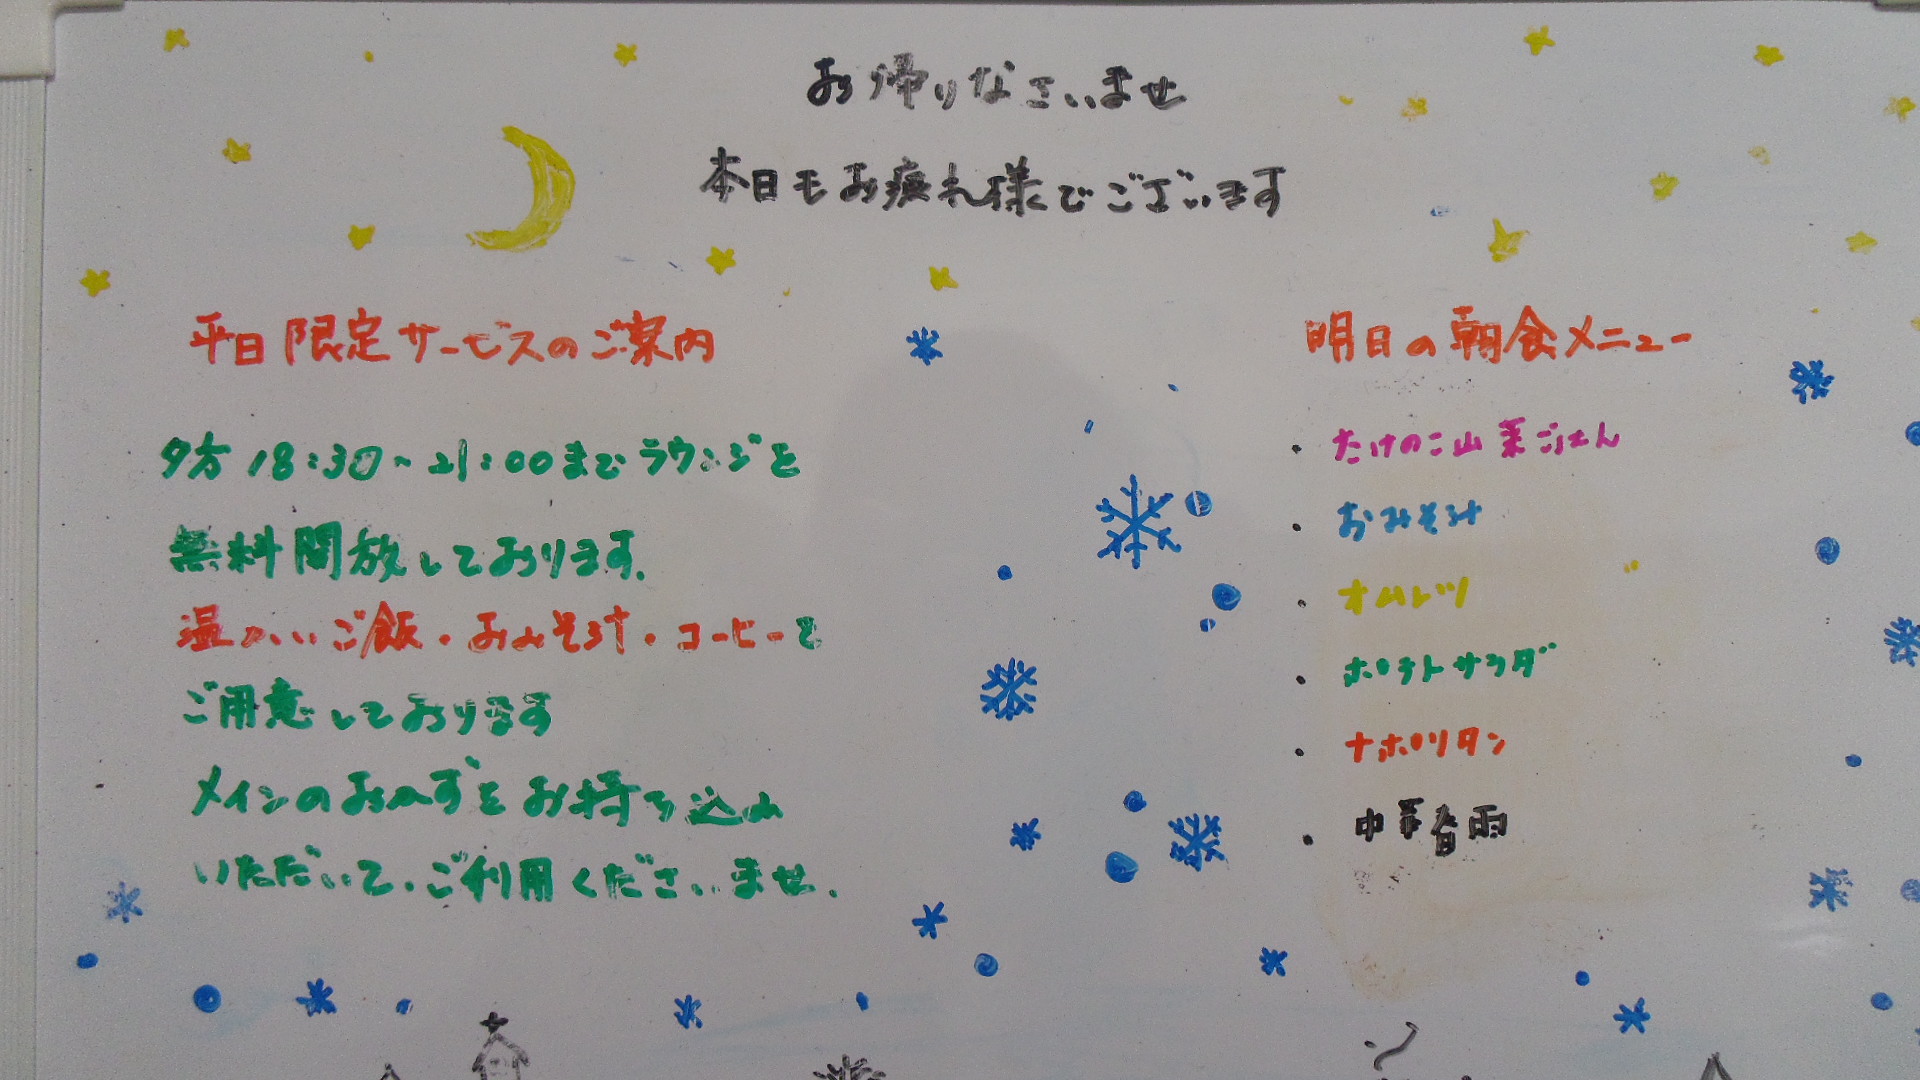 お帰りなさいませ
本日もお疲れ様でございます
平日限定サービスのご案内
夕方18:30~21:00までラウンジを
無料開放しております.
温かいご飯・おみそ汁・コーヒーを
ご用意しております
メインのおかずをお持ち込み
いただいて、ご利用くださいませ.
明日の朝食メニュー
・たけのこ山菜ごはん
・おみそ汁
・オムレツ
・ポテトサラダ
・ナポリタン
・中華春雨